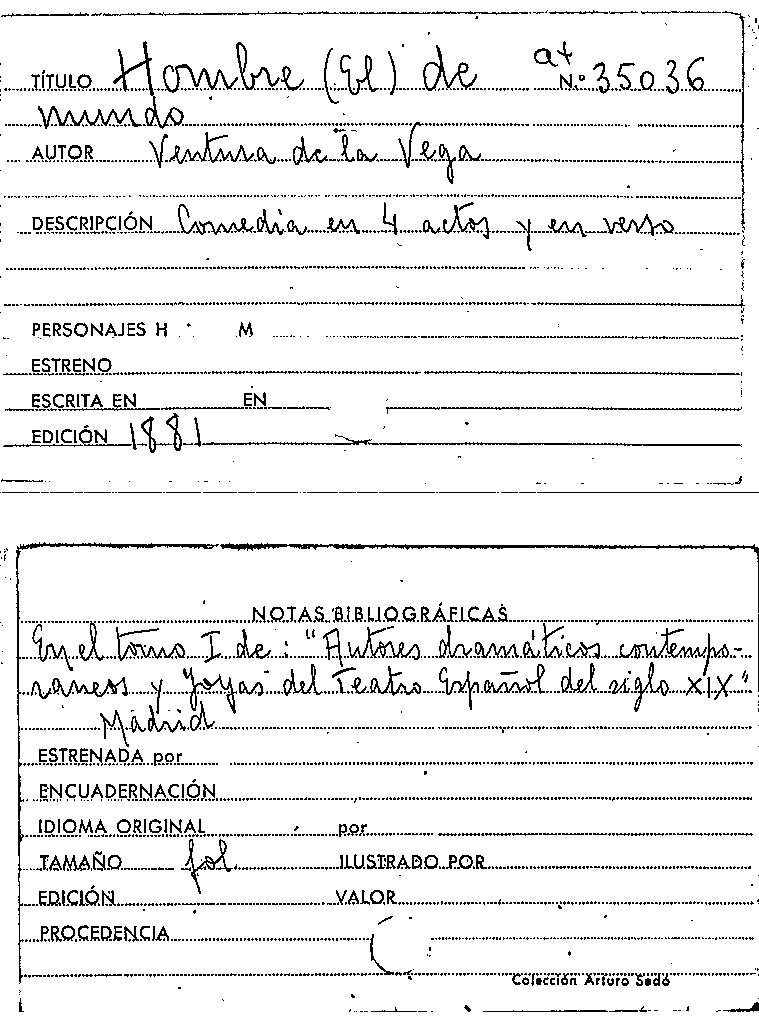 TÍTULO Hombre (El) de at N.º 35036
mundo
AUTOR Ventura de la Vega
DESCRIPCIÓN Comedia en 4 actos y en verso
PERSONAJES H M
ESTRENO
ESCRITA EN EN
EDICIÓN 1881
NOTAS BIBLIOGRÁFICAS
En el tomo I de: "Autores dramáticos contempo-
raneos y Joyas del Teatro Español del siglo XIX"
Madrid
ESTRENADA por
ENCUADERNACIÓN
IDIOMA ORIGINAL por
TAMAÑO fol ILUSTRADO POR
EDICIÓN VALOR
PROCEDENCIA
Colección Arturo Sedó